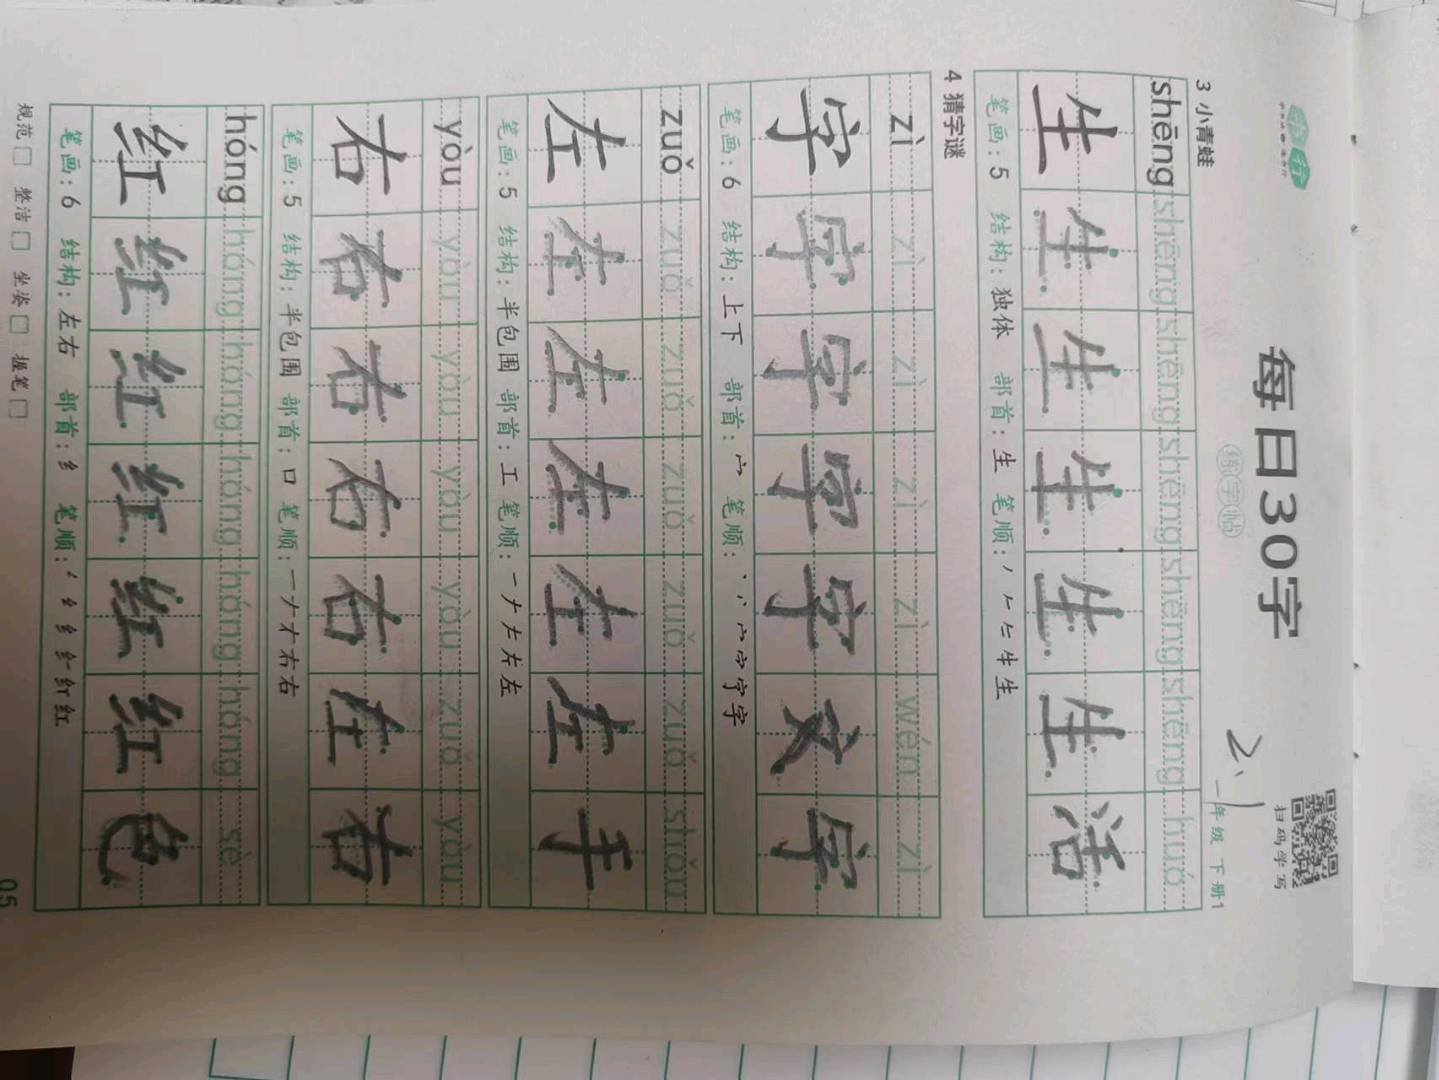 每日30字
练字帖
扫码学写
2、1
一年级 下册1
3 小青蛙
shēng shēng shēng shēng shēng shēng huó
生 生 生 生 生 生 活
笔画:5 结构:独体 部首:生 笔顺:丿 𠂉 𠂒 牛 生
4 猜字谜
zì zì zì zì zì wén zì
字 字 字 字 字 文 字
笔画:6 结构:上下 部首:宀 笔顺:丶 丷 宀 字 字
zuǒ zuǒ zuǒ zuǒ zuǒ zuǒ shǒu
左 左 左 左 左 左 手
笔画:5 结构:半包围 部首:工 笔顺:一 𠂇 左 左
yòu yòu yòu yòu yòu zuǒ yòu
右 右 右 右 右 左 右
笔画:5 结构:半包围 部首:口 笔顺:一 𠂇 右 右
hóng hóng hóng hóng hóng hóng sè
红 红 红 红 红 红 色
笔画:6 结构:左右 部首:纟 笔顺:纟 红 红
规范 整洁 坐姿 握笔
05